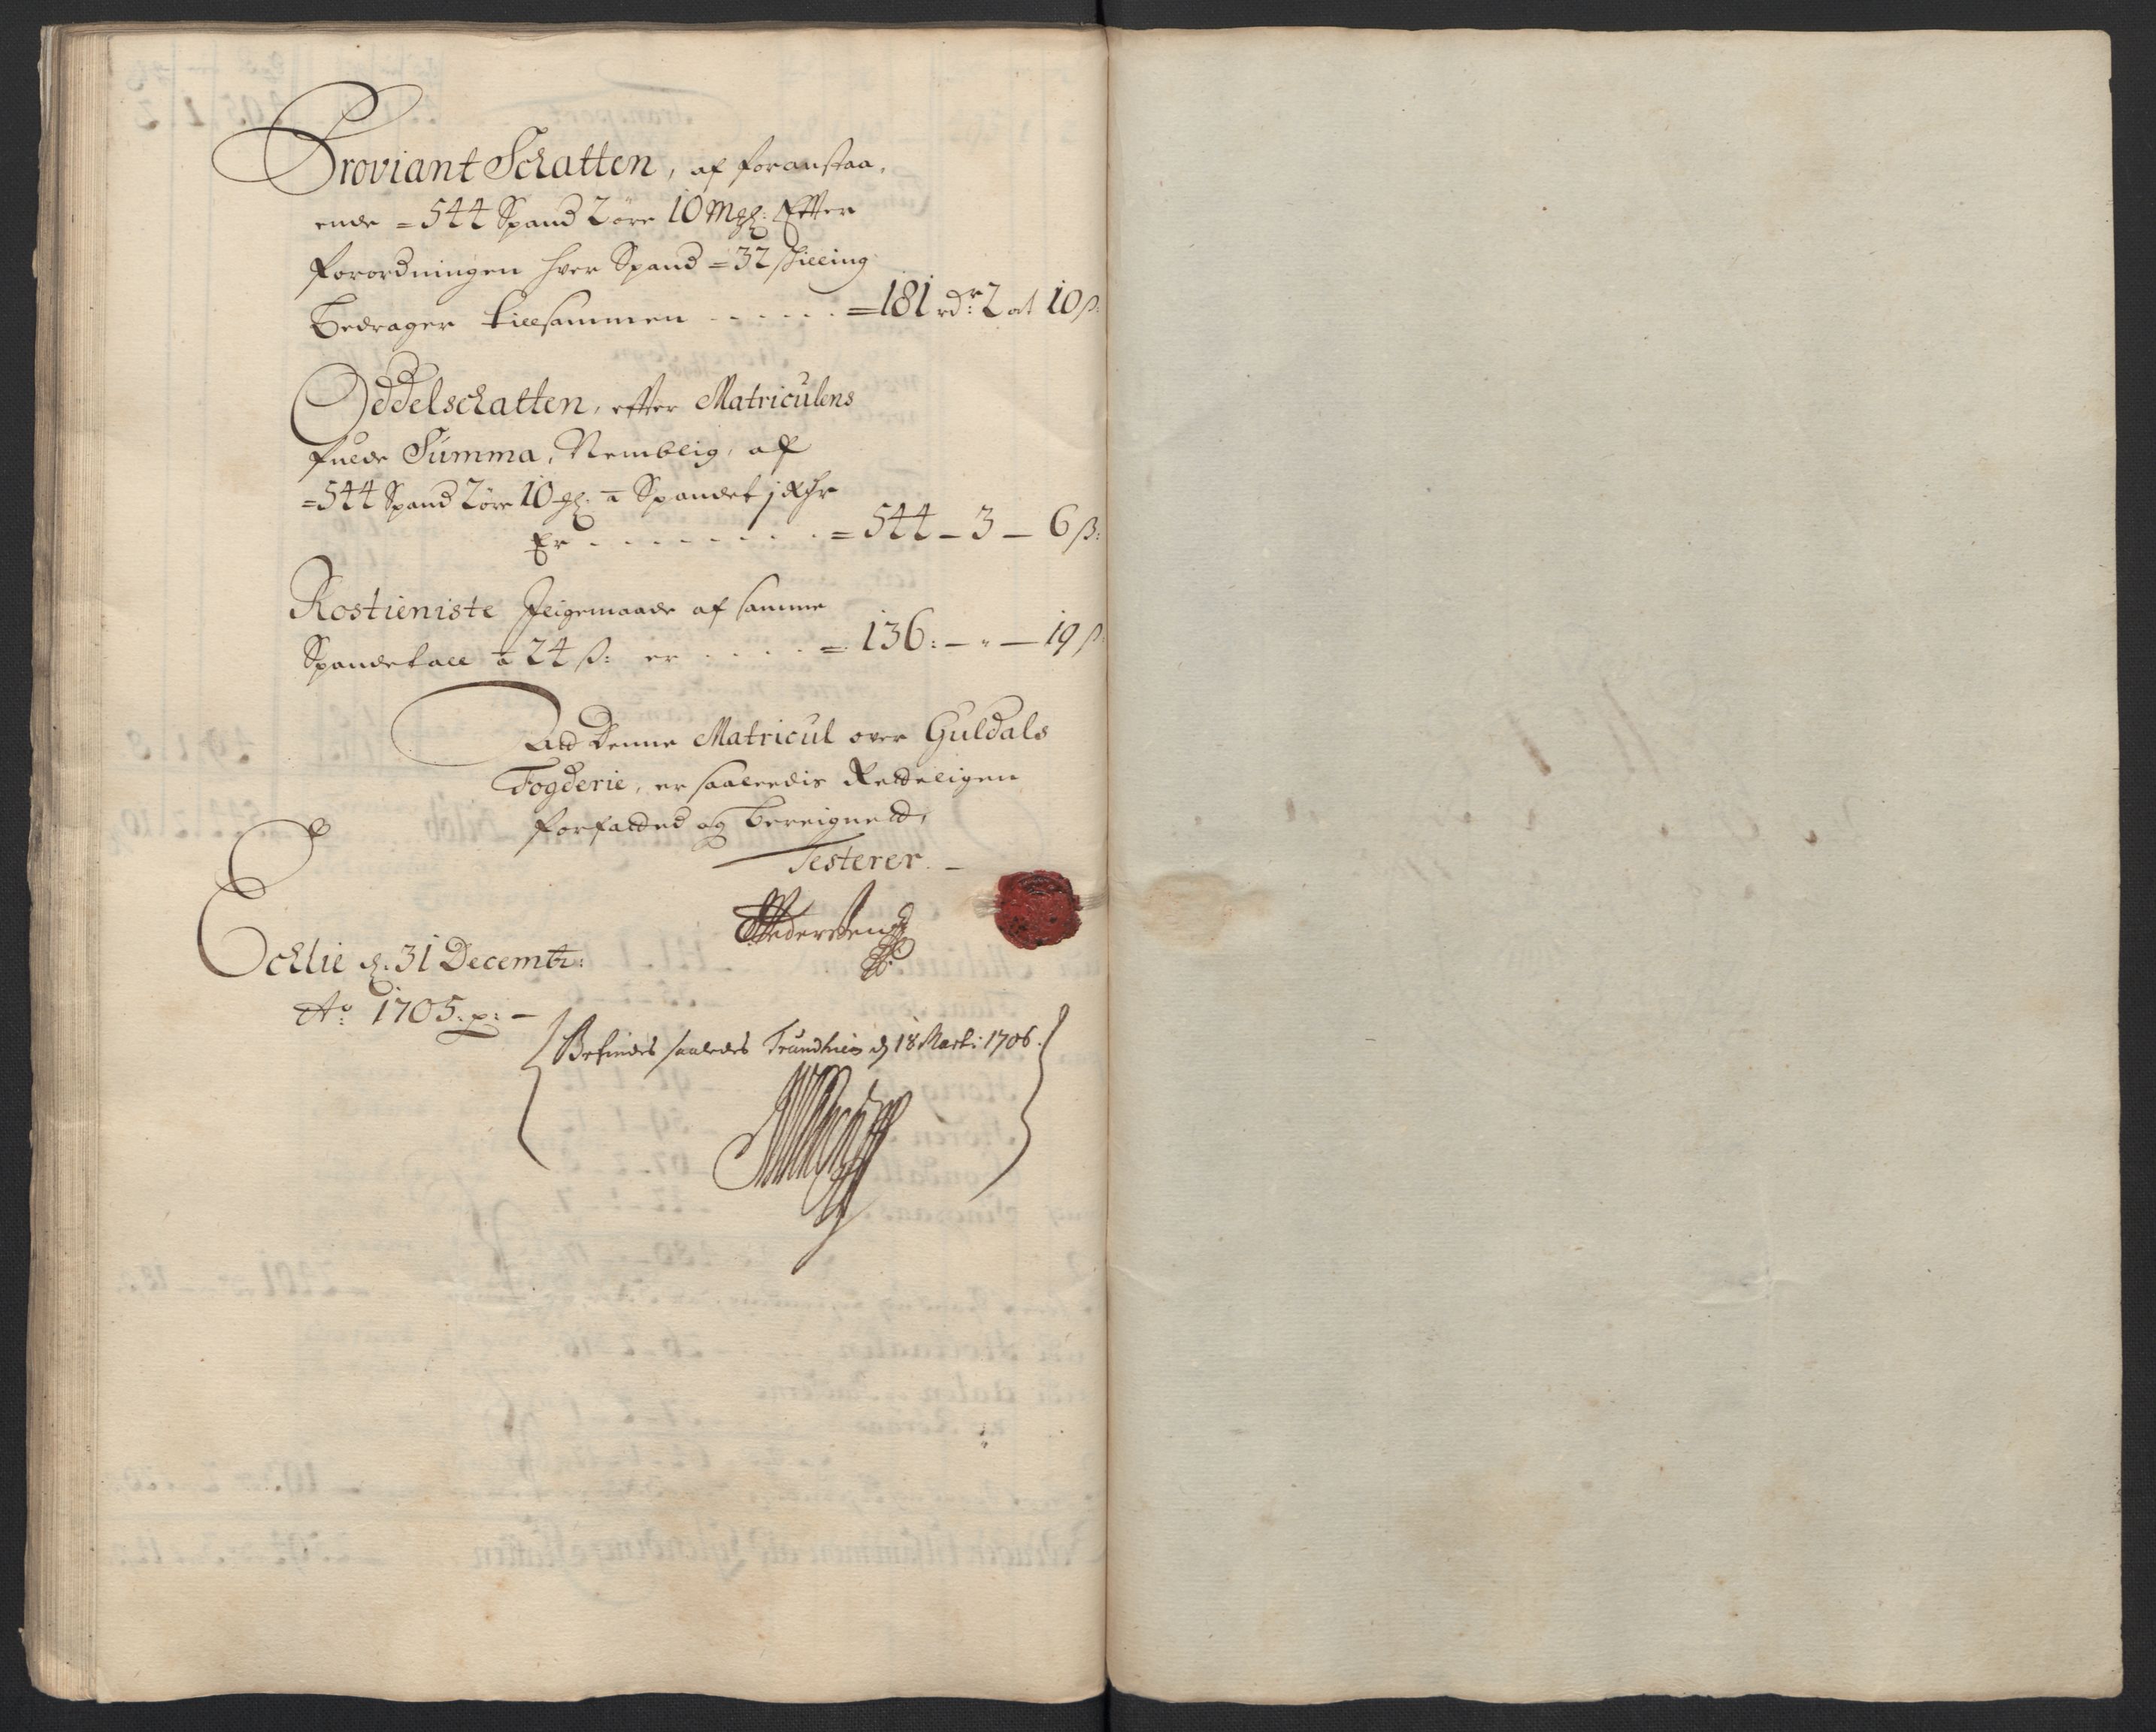 Proviant Schatten, af foranstaa,
ende = 544 Spand 2 øre 10 Mgl: Efter
forordningen hver Spand = 32 skilling
Bedrager tillsammen . . . . . . = 181 rdr: 2 ort 10 ß:
Oddelschatten, efter Matriculens
fulde Summa, Nemblig, af
= 544 Spand 2 øre 10 gl: a Spandet j Rdr
Er . . . . . . . . = 544 – 3 – 6 ß:
Rostieniste Jligemaade af samme
Spandetall a 24 ß: er . . . . = 136: – " – 19 ß
Att Denne Matricul over Guldals
Fogderie, er saaledis Retteligen
forfatted og Bereignett,
Testerer. –
Pedersen
Echlie d. 31 Decembr:
Ao: 1705. p: –
Befindes saaledes Trundhiem d 18 Marti: 1706.